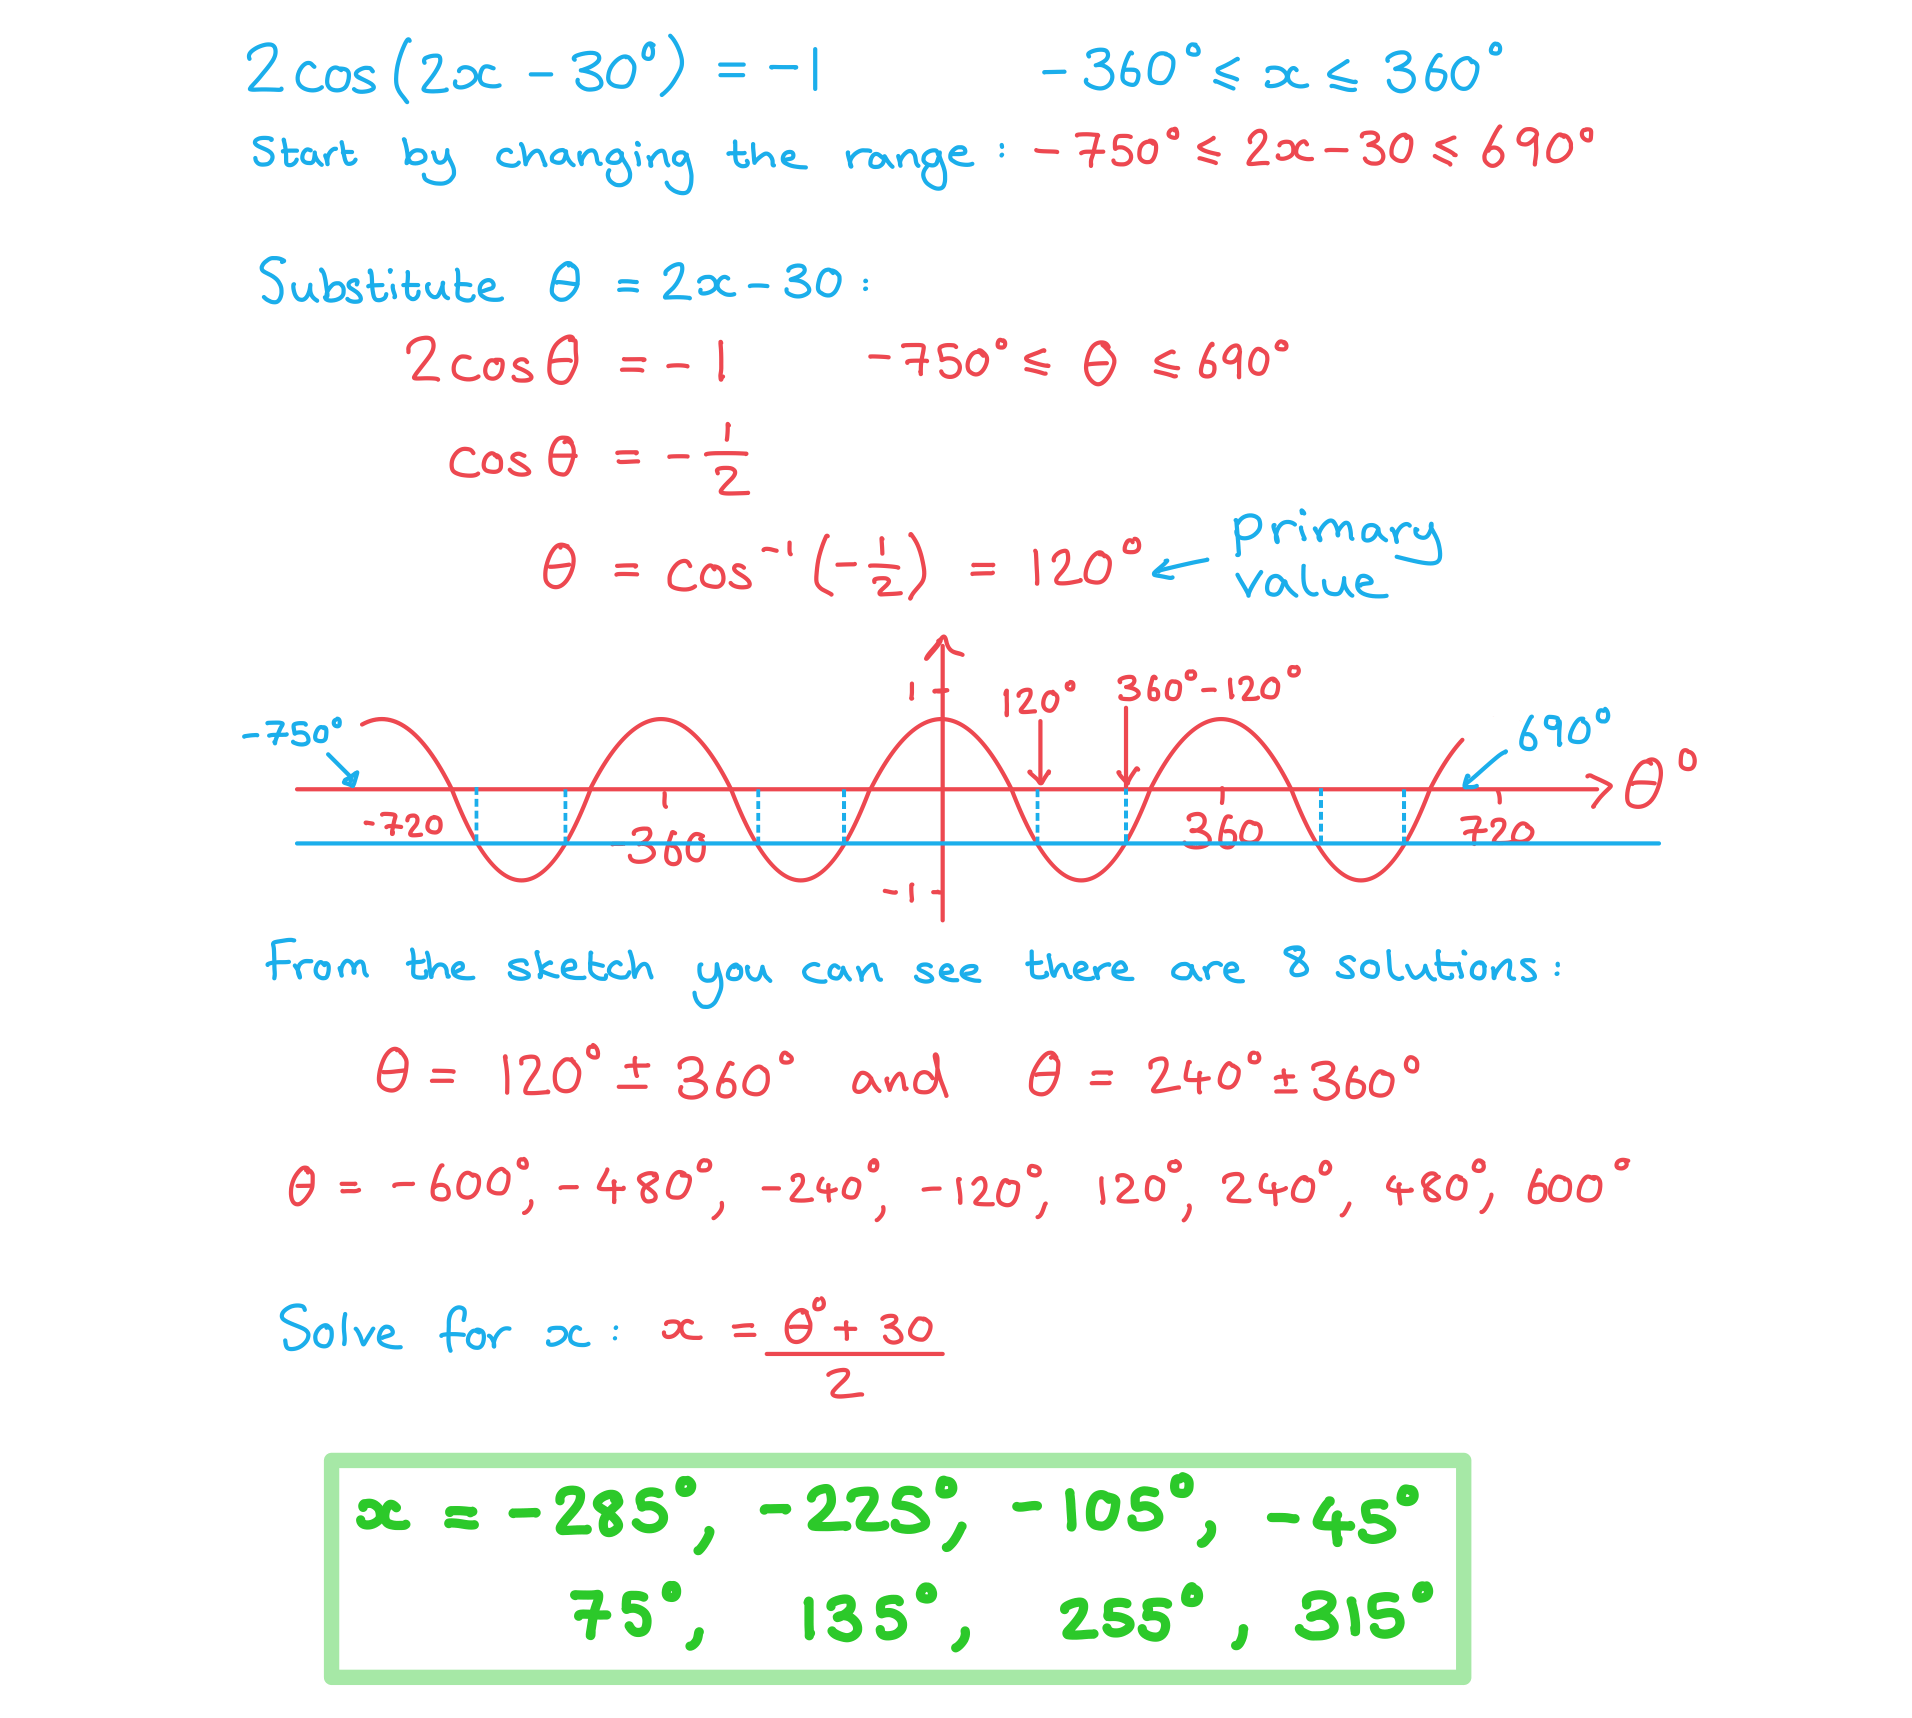 2cos(2x − 30°) = −1     −360° ⩽ x ⩽ 360°
Start by changing the range: −750° ⩽ 2x−30 ⩽ 690°
Substitute θ = 2x−30:
2cosθ = −1     −750° ⩽ θ ⩽ 690°
cosθ = −1/2
θ = cos⁻¹(−1/2) = 120° ← primary value
1
120°     360°−120°
−750°     690°
θ°
−720     −360     360     720
−1
From the sketch you can see there are 8 solutions:
θ = 120° ± 360°   and   θ = 240° ± 360°
θ = −600°, −480°, −240°, −120°, 120°, 240°, 480°, 600°
Solve for x: x = (θ° + 30)/2
x = −285°, −225°, −105°, −45°
75°, 135°, 255°, 315°